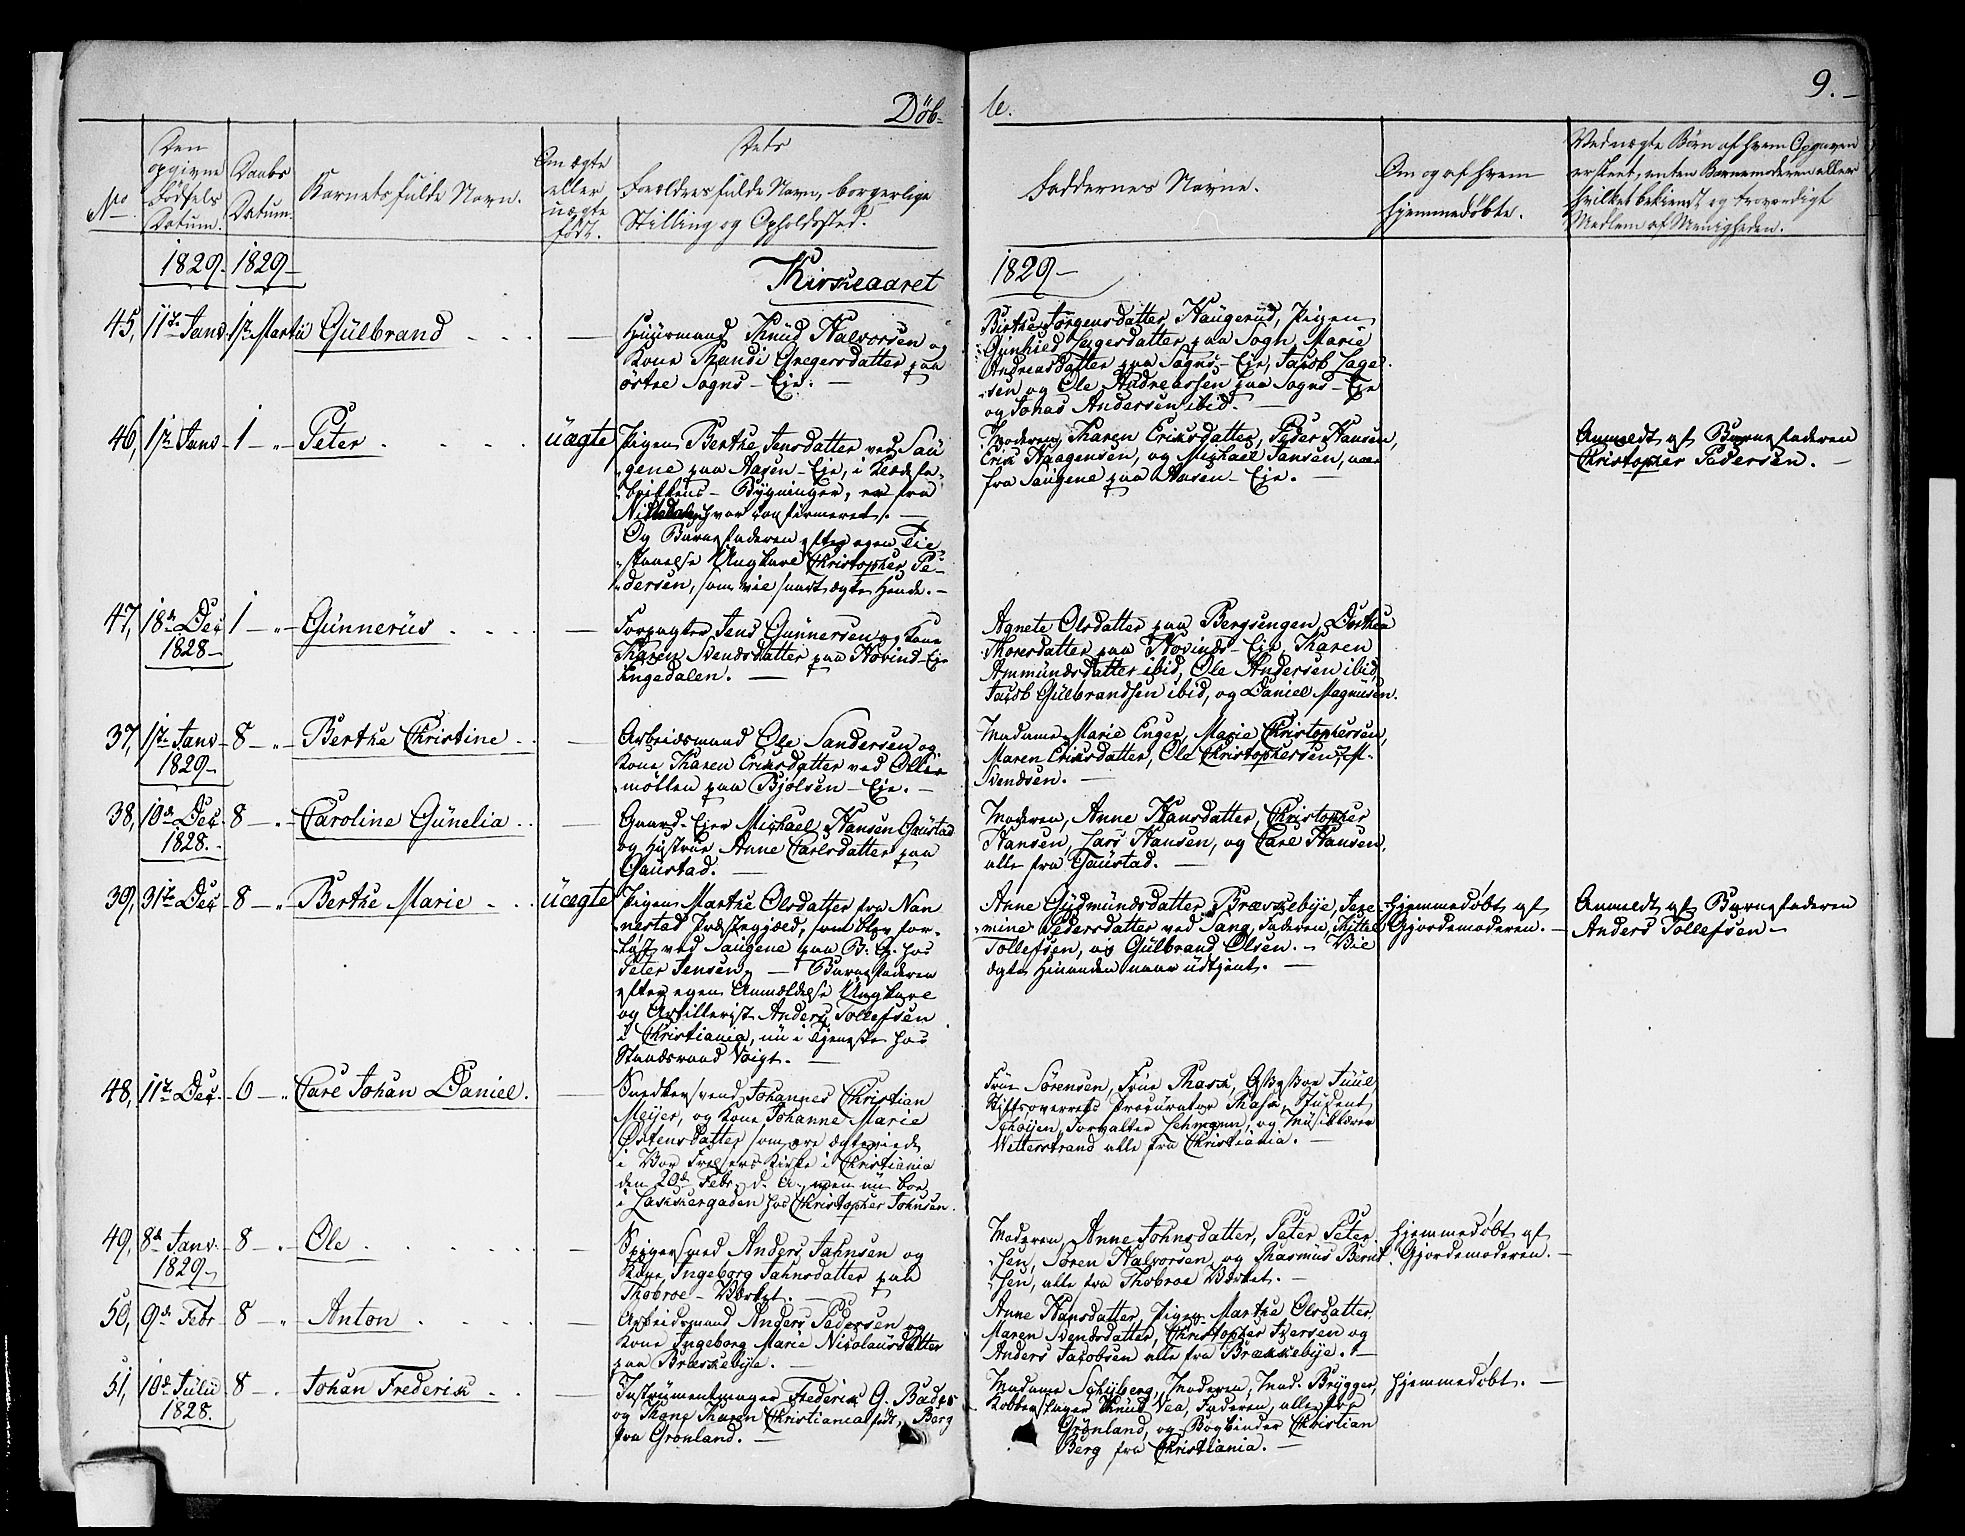 Døb-
te.
9.
No
Den
opgivne
Fødsels
Datum.
Daabs
Datum.
Barnets fulde Navn.
Om ægte
eller
uægte
født.
Dets
Forældres fulde Navn, borgerlige
Stilling og Opholdssted.
Faddernes Navne.
Om og af hvem
hjemmedøbte.
Ved uægte Børn af hvem Opgaven
er skeet, enten Barnemoderen eller
hvilket bekiendt og troværdigt
Medlem af Menigheden.
1829. 1829
Kirkeaaret
1829
45, 11te Janv 1ste Martii Gülbrand
Huusmand Knüd Halvorsen og
Kone Randi Gregersdatter paa
østre Sogns-Eje.
Birthe Jörgensdatter Haugerüd, Pigen
Günhild Lagesdatter paa Sogn, Marie
Andreasdatter paa Sogns-Eje, Jacob Lage-
sen og Ole Andreassen paa Sogns-Eje
og Johas Andersen ibid.
46, 1ste Janv 1 Peter
üægte
Pigen Berthe Jensdatter ved Sau
gene paa Aasen-Eje, i Klædefa-
brikkens-Bygninger, er fra
Nittedalen hvor confirmeret.
Og Barnefaderen efter egen Tie
staaelse Ungkarl Christopher Pe-
dersen, som vil snart ægte Hende.
Moderen, Karen Eriksdatter, Peder Hansen,
Erik Haagensen, og Michael Jansen, alle
fra Saügene paa Aasen-Eje.
Anmeldt af Barnefaderen
Christopher Pedersen.
47, 18de Dec 1 Günnerüs
1828
Forpagter Jens Günnersen og Kone
Karen Svendsdatter paa Hovind-Eje
Engedalen.
Agnete Olsdatter paa Bergsengen, Dorthea
Thoresdatter paa Hovinds-Eje, Karen
Ammündsdatter ibid, Ole Andersen ibid,
Jacob Gülbrandsen ibid, og Daniel Magnüsen.
37, 1ste Janv 8 Berthe Christine
1829
Arbeidsmand Ole Sandersen og
Kone Karen Eriksdatter ved Ollie
møllen paa Bjølsen-Eje.
Madame Marie Enger, Marie Christophersen,
Maren Eriksdatter, Ole Christophersen,
Svendsen.
38, 10de Dec 8 Caroline Günelia
1828.
Gaard-Ejer Michael Hansen Gaüstad
og Hustrue Anne Carlsdatter paa
Gaustad.
Moderen, Anne Hansdatter, Christopher
Hansen, Lars Hansen, og Carl Hansen,
alle fra Gaüstad.
39, 31te Dec 8 Berthe Marie
üægte
Pigen Marthe Olsdatter fra Nan
nestad Præstegjæld, som blev for-
løst ved Saügene paa B: E: hos
Peter Jensen. Barnefaderen
efter egen Anmeldelse Ungkarl
og Artillerist Anders Tollefsen
i Christiania, nü i Tjeneste hos
Stadsraad Voigt.
Anne Güdmündsdatter Brækkebije, Jege-
mine Pedersdatter ved Sang, Faderen, Kittel
Tollefsen, og Gülbrand Olsen. Vil
ægte Hinanden naar üdtjent.
Hjemmedøbt af
Gjordemoderen.
Anmeldt af Barnefaderen
Anders Tollefsen
48, 11te Dec. 6 Carl Johan Daniel.
Snedkersvend Johannes Christian
Meijer, og Kone Johanne Marie
Østensdatter som ere ægteviede
i Vor Frelsers Kirke i Christiania
den 20de Febr. d. A. men nü boe
i Lakkergaden hos Christopher Johnsen.
Frue Sørensen, Frue Rask, Juül,
Stiftsoverrets Procurator Rask, Stüdent
Schøyen, Forvalter Lehmann, og Müsiklærer
Wetterstrand alle fra Christiania.
49, 8de Janv. 8 Ole
1829
Spigersmed Anders Jahnsen og
Kone Ingeborg Jahnsdatter paa
Thobroe-Værket.
Moderen, Anne Johnsdatter, Peter Peter-
sen, Søren Halvorsen, og Rasmüs Bernt-
sen, alle fra Thobroe Værket.
Hjemmedøbt af
Gjordemoderen.
50, 9de Febr 8 Anton
Arbeidsmand Anders Pedersen og
Kone Ingeborg Marie Nicolaüsdatter
paa Brækkebije.
Anne Hansdatter, Pigen Marthe Olsdatter
Maren Svendsdatter, Christopher Iversen og
Anders Jacobsen alle fra Brækkebije.
51, 10de Julii 8 Johan Frederik
1828.
Instrümentmager Frederik G. Bader
og Kone Karen Christiania født, Berg
fra Grønland.
Madame Schjberg, Moderen, Mad. Brygger,
Kobberslager Knüd Vea, Faderen, alle fra
Grønland, og Bogbinder Christian
Berg fra Christiania.
Hjemmedøbt.